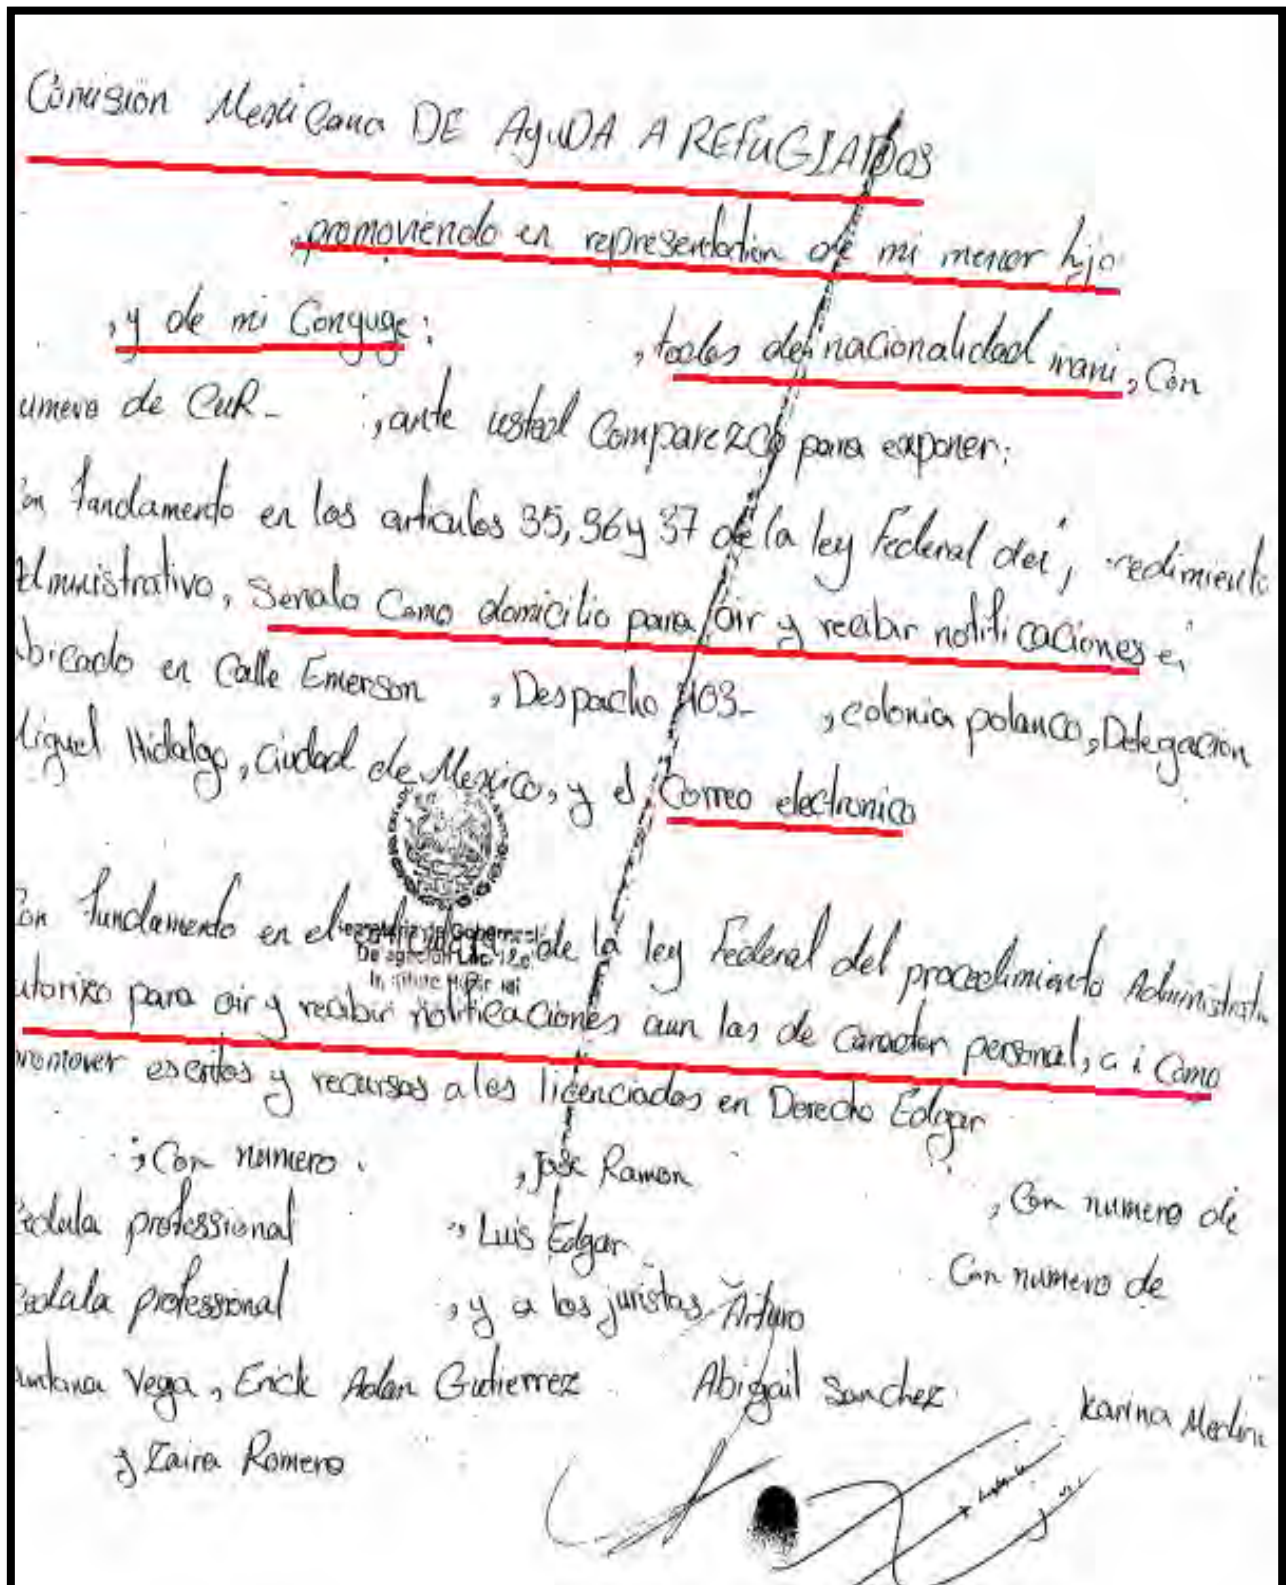 Comision Mexicana DE AyuDA A REFUGIADOS
,promoviendo en representation de mi menor hijo
,y de mi Conyuge; ,todos de nacionalidad irani, Con
umero de CUR- ;ante usted Comparezco para exponer:
on fundamento en los articulos 35,36 y 37 de la ley Federal del redimiento
Administrativo, Senalo Como domicilio para oir y recibir notificaciones el
bicado en Calle Emerson , Despacho 403- , colonia polanco, Delegacion
Miguel Hidalgo, ciudad de Mexico, y el Correo electronico
Con fundamento en el de la ley Federal del procedimiento Administrativ
De
utorizo para oir y recibir notificaciones aun las de caracter personal, a i Como
romover escritos y recursos a los licenciados en Derecho Edgar
; Con numero , Jose Ramon , Con numero de
cedula professional , Luis Edgar Con numero de
cedula professional , y a los juristas Arturo
untana Vega, Erick Adan Gutierrez Abigail Sanchez Karina Medin
y Zaira Romero